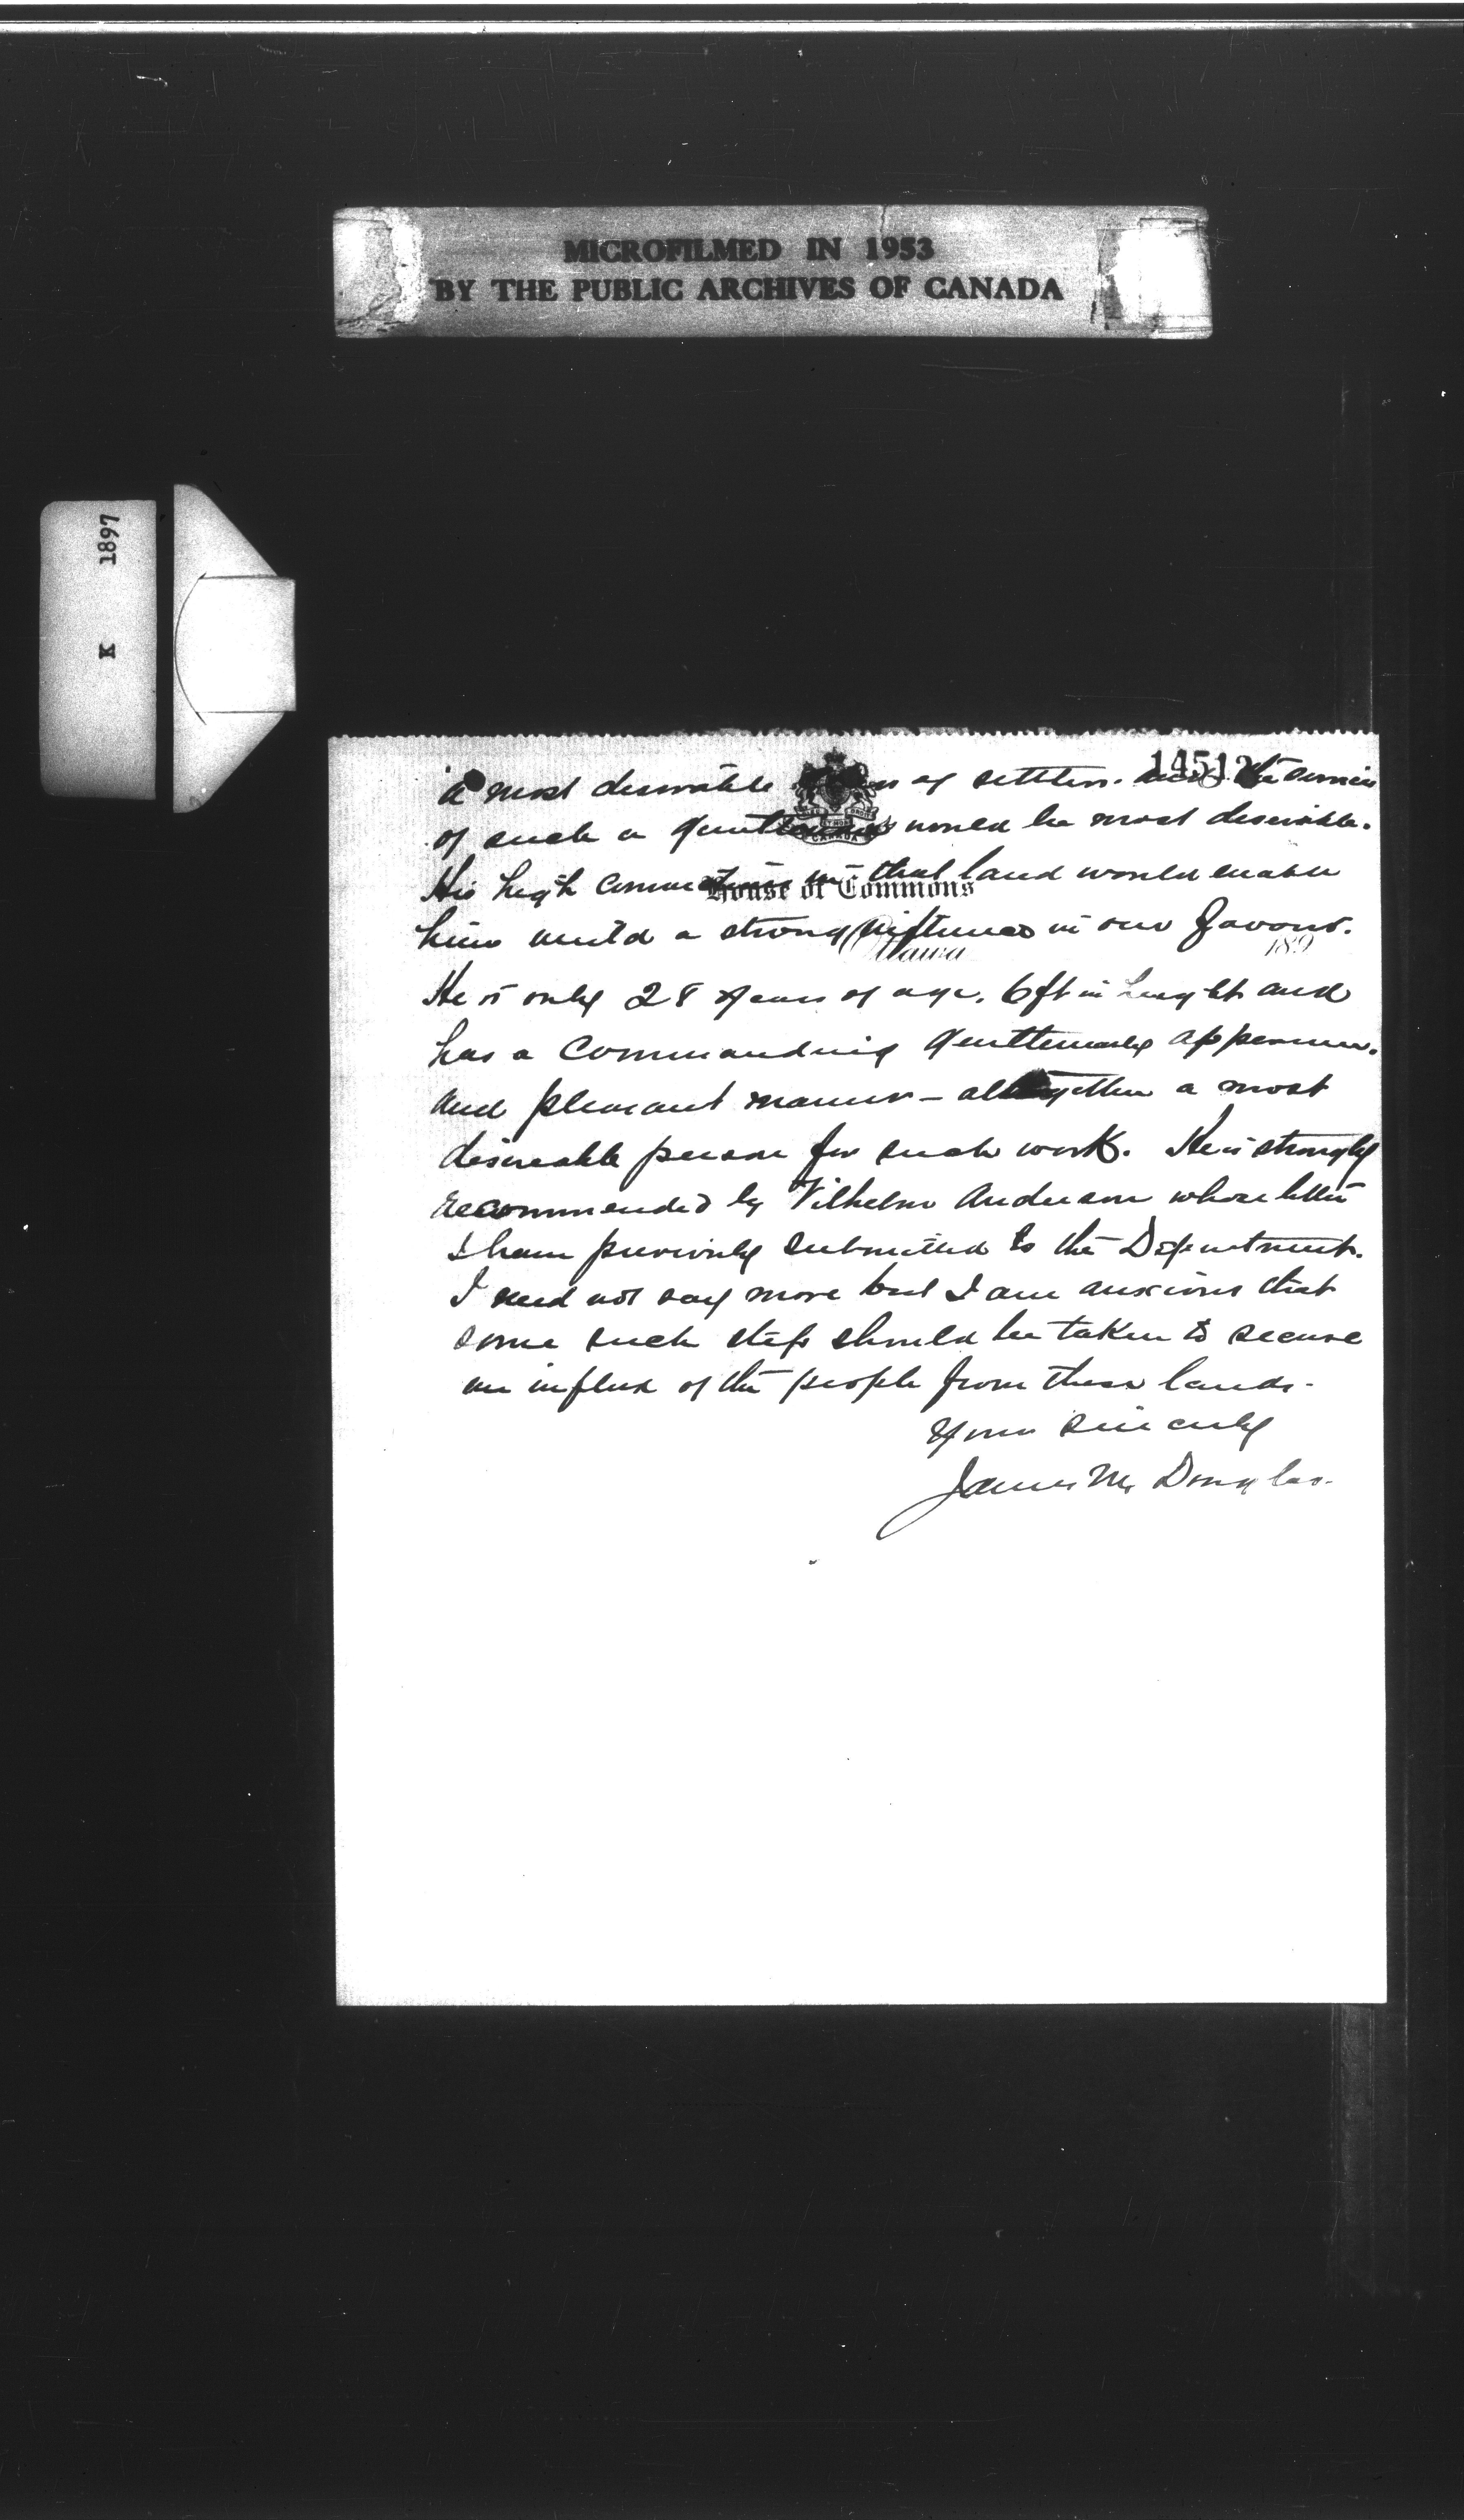 MICROFILMED IN 1953
BY THE PUBLIC ARCHIVES OF CANADA
K 1897
14512
a most desirable of settlers. and the services
of such a gentleman would be most desirable.
House of Commons
His high connections in that land would enable
him wield a strong influence in our favour.
Ottawa 189
He is only 28 years of age, 6 ft in height and
has a commanding gentlemanly appearance.
and pleasant manner - altogether a most
desireable person for such work. He is strongly
recommended by Vilhelm Anderson whose letter
I have previously submitted to the Department.
I need not say more but I am anxious that
some such step should be taken to secure
an influx of the people from these lands.
Yours sincerely
James M. Douglas.